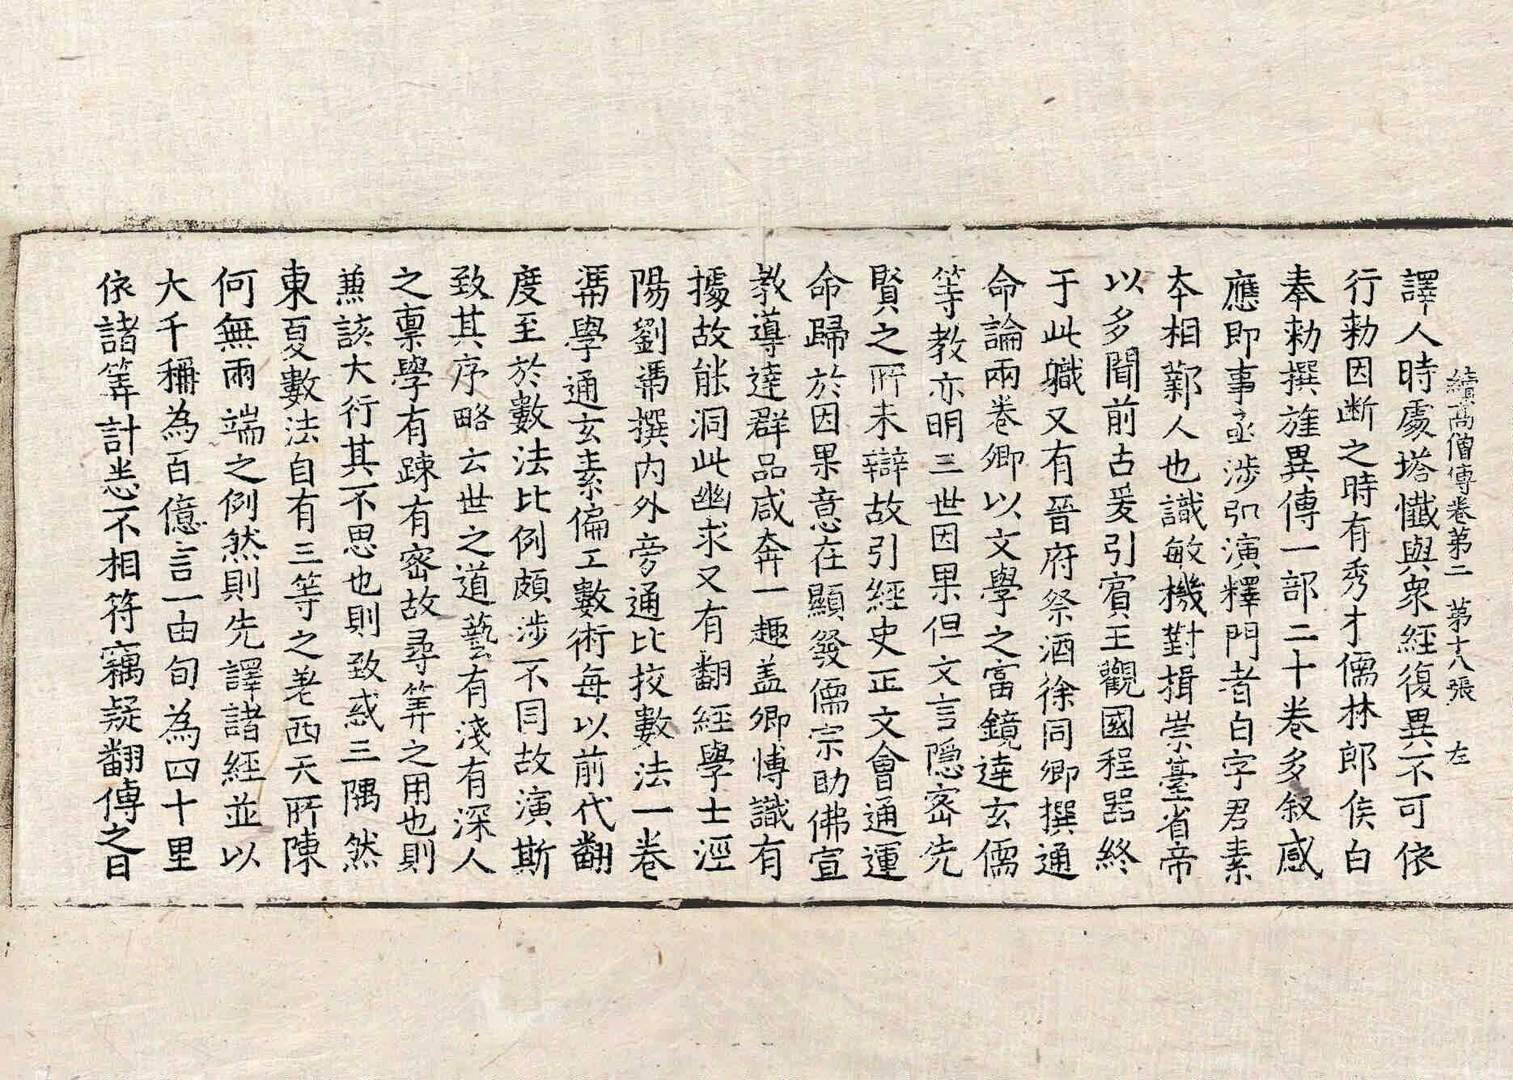 續高僧傳卷第二 第十八張 左
譯人時處塔懺與衆經復異不可依
行勑因断之時有秀才儒林郎侯白
奉勑撰旌異傳一部二十卷多叙感
應即事亟涉弘演釋門者白字君素
本相鄴人也識敏機對揖崇臺省帝
以多聞前古爰引賔王觀國程器終
于此職又有晉府祭酒徐同卿撰通
命論兩卷卿以文學之富鏡達玄儒
等教亦明三世因果但文言隱宻先
賢之所未辯故引經史正文會通運
命歸於因果意在顯發儒宗助佛宣
教導達群品咸奔一趣盖卿博識有
據故能洞此幽求又有翻經學士涇
陽劉馮撰内外旁通比挍數法一卷
馮學通玄素偏工數術每以前代翻
度至於數法比例頗涉不同故演斯
致其序略云世之道藝有淺有深人
之禀學有踈有宻故尋筭之用也則
兼該大行其不思也則致惑三隅然
東夏數法自有三等之差西天所陳
何無兩端之例然則先譯諸經並以
大千稱為百億言一由旬為四十里
依諸筭計悉不相符竊疑翻傳之日